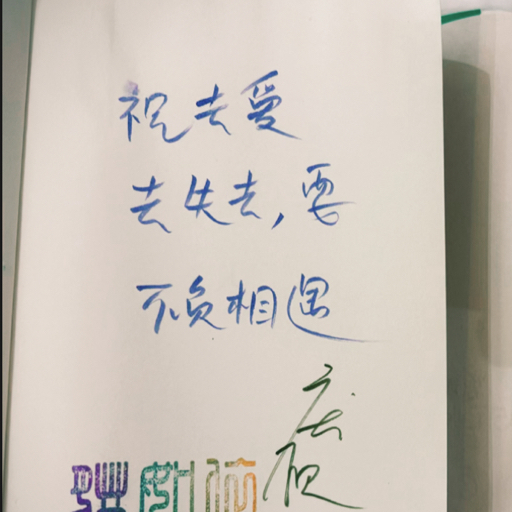 祝去爱
去失去，要
不负相遇